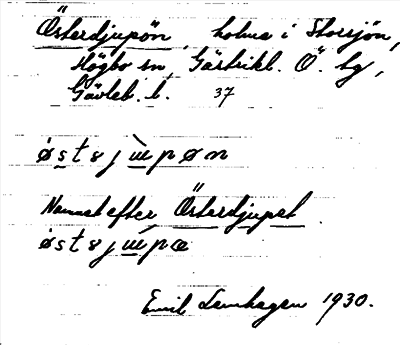 Österdjupön, holme i Storsjön,
Högbo sn, Gästrikl. Ö. tg,
Gävleb. l. 37
østɘjɯ̀pøn
Namnet efter Österdjupet
østɘjɯ́pɶ
Emil Lenhagen 1930.